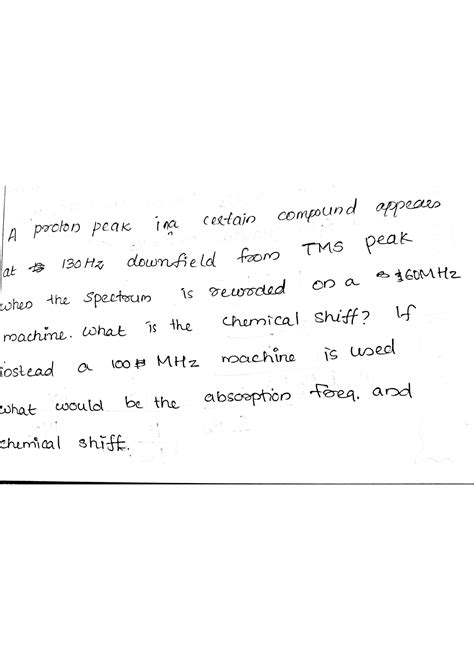 A proton peak in a certain compound appears
at 130Hz downfield from TMS peak
when the spectrum is recorded on a 60MHz
machine. what is the chemical shiff? If
instead a 100 MHz machine is used
what would be the absorption freq. and
chemical shift.